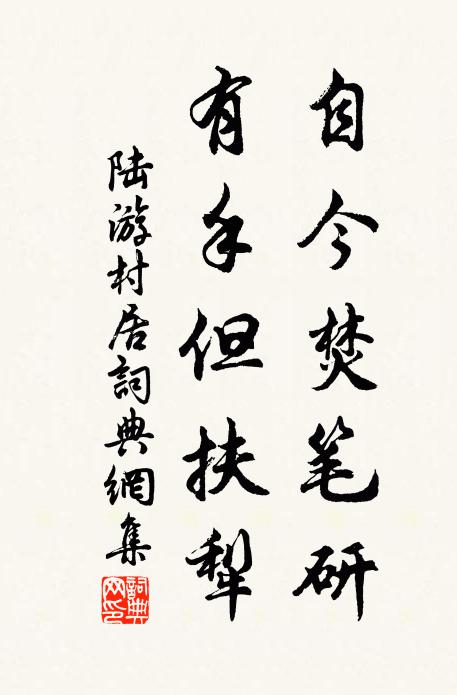 自今焚笔研
有手但扶犁
陆游村居詞典網集
詞典网印